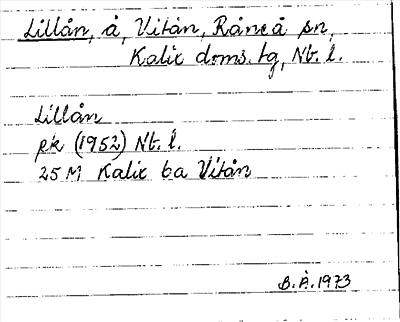 Lillån, å, Vitån, Råneå sn,
Kalix doms. tg, Nb. l.
Lillån
pk (1952) Nb. l.
25 M Kalix 6a Vitån
B. Å. 1973